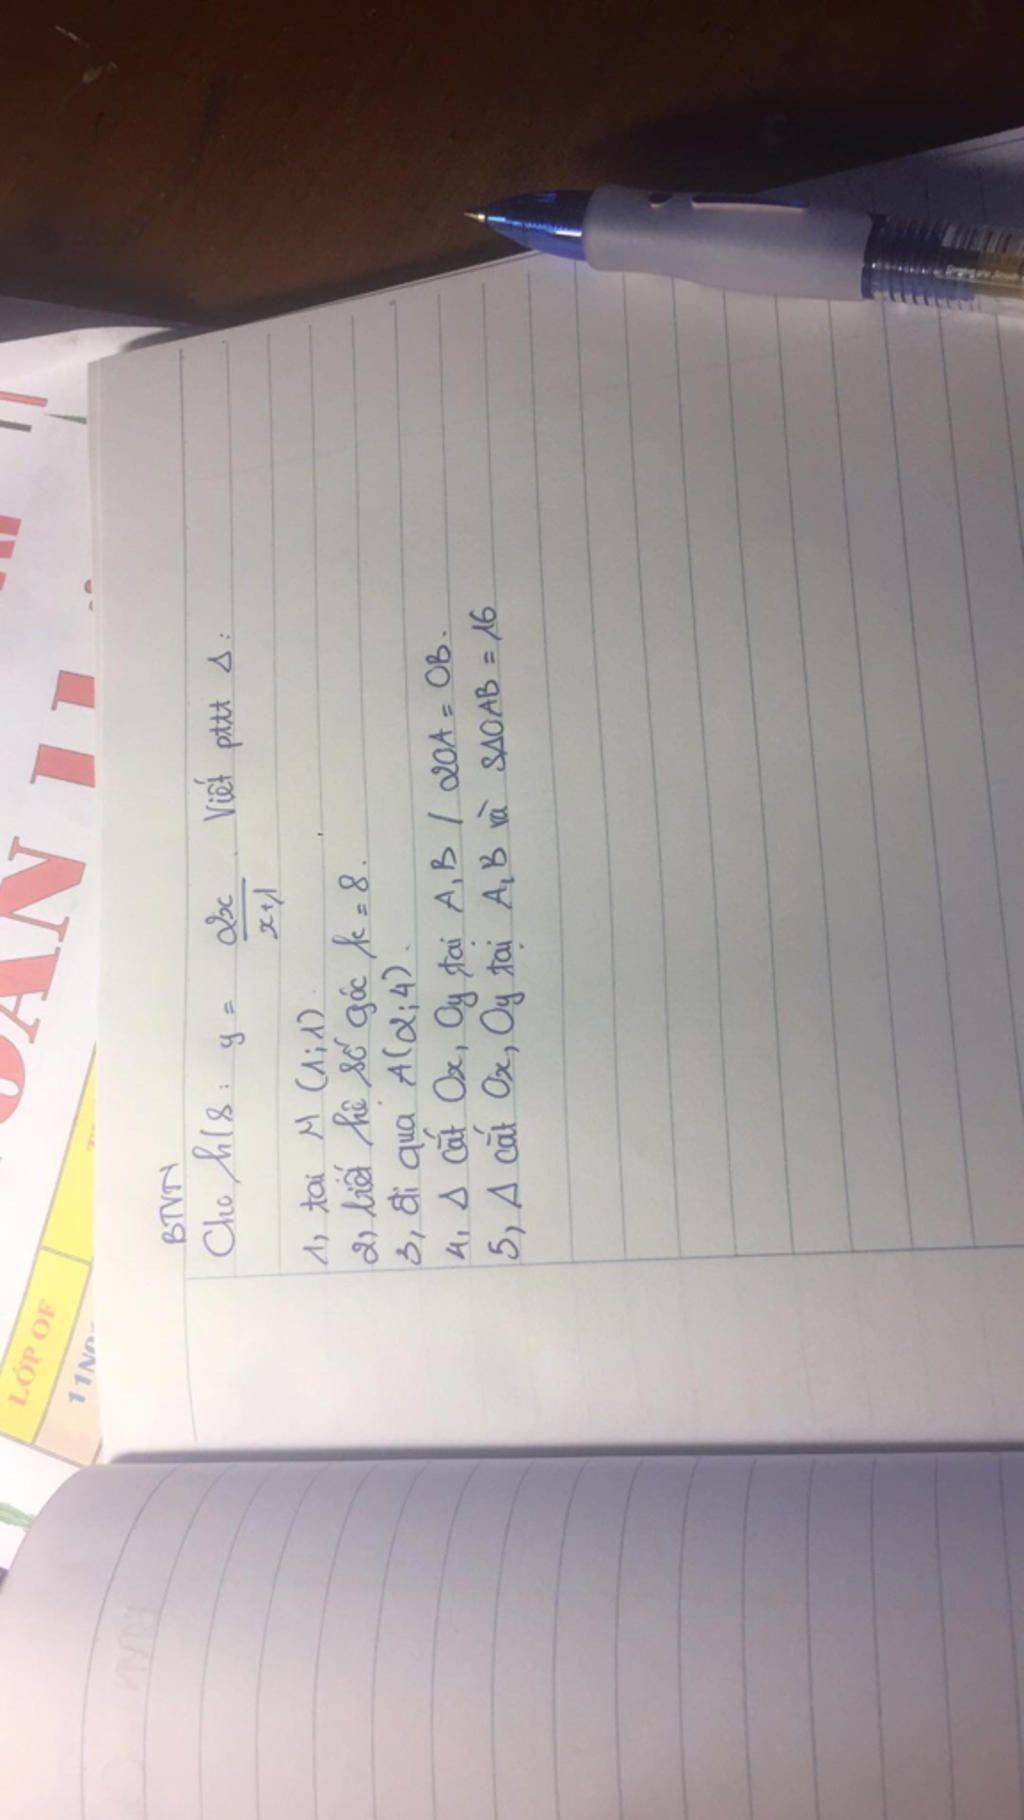 BTVN
Cho h/s : y = 2x/x+1. Viết pttt Δ:
1, tại M (1;1).
2, biết hệ số góc k = 8.
3, đi qua A(2;4).
4, Δ cắt Ox, Oy tại A,B / 2OA = OB.
5, Δ cắt Ox, Oy tại A,B và SΔOAB = 16
LỚP OF